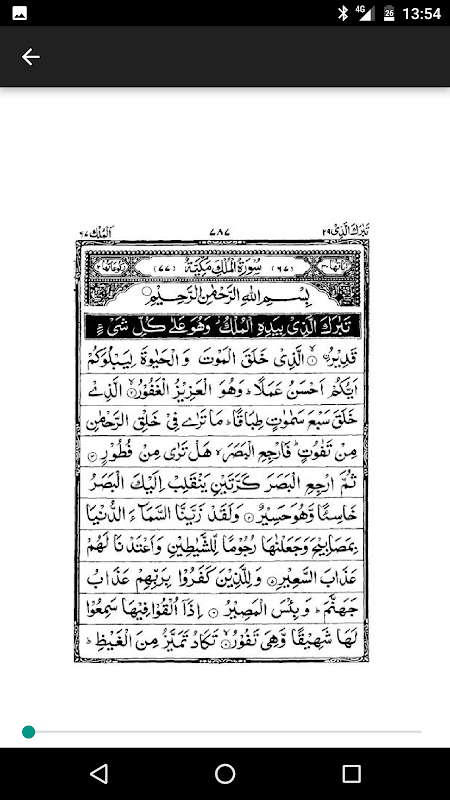 4G
26
13:54
تَبٰرَكَ الَّذِیْ ٢٩
٧٨٧
اَلْمُلْك ٦٧
(٦٧) سُوْرَةُ الْمُلْكِ مَكِّيَّةٌ (٧٧)
بِسْمِ اللهِ الرَّحْمٰنِ الرَّحِيْمِ
تَبٰرَكَ الَّذِيْ بِيَدِهِ الْمُلْكُ وَهُوَ عَلٰى كُلِّ شَيْءٍ
قَدِيْرُ ۨ ۙ الَّذِيْ خَلَقَ الْمَوْتَ وَ الْحَيٰوةَ لِيَبْلُوَكُمْ
اَيُّكُمْ اَحْسَنُ عَمَلًا ؕ وَهُوَ الْعَزِيْزُ الْغَفُوْرُ ۙ الَّذِيْ
خَلَقَ سَبْعَ سَمٰوٰتٍ طِبَاقًا ؕ مَا تَرٰى فِيْ خَلْقِ الرَّحْمٰنِ
مِنْ تَفٰوُتٍ ؕ فَارْجِعِ الْبَصَرَ ۙ هَلْ تَرٰى مِنْ فُطُوْرٍ ٣
ثُمَّ ارْجِعِ الْبَصَرَ كَرَّتَيْنِ يَنْقَلِبْ اِلَيْكَ الْبَصَرُ
خَاسِئًا وَّهُوَ حَسِيْرٌ ٤ وَلَقَدْ زَيَّنَّا السَّمَآءَ الدُّنْيَا
بِمَصَابِيْحَ وَجَعَلْنٰهَا رُجُوْمًا لِّلشَّيٰطِيْنِ وَاَعْتَدْنَا لَهُمْ
عَذَابَ السَّعِيْرِ ٥ وَلِلَّذِيْنَ كَفَرُوْا بِرَبِّهِمْ عَذَابُ
جَهَنَّمَ ؕ وَبِئْسَ الْمَصِيْرُ ٦ اِذَآ اُلْقُوْا فِيْهَا سَمِعُوْا
لَهَا شَهِيْقًا وَّهِيَ تَفُوْرُ ۙ تَكَادُ تَمَيَّزُ مِنَ الْغَيْظِ ؕ